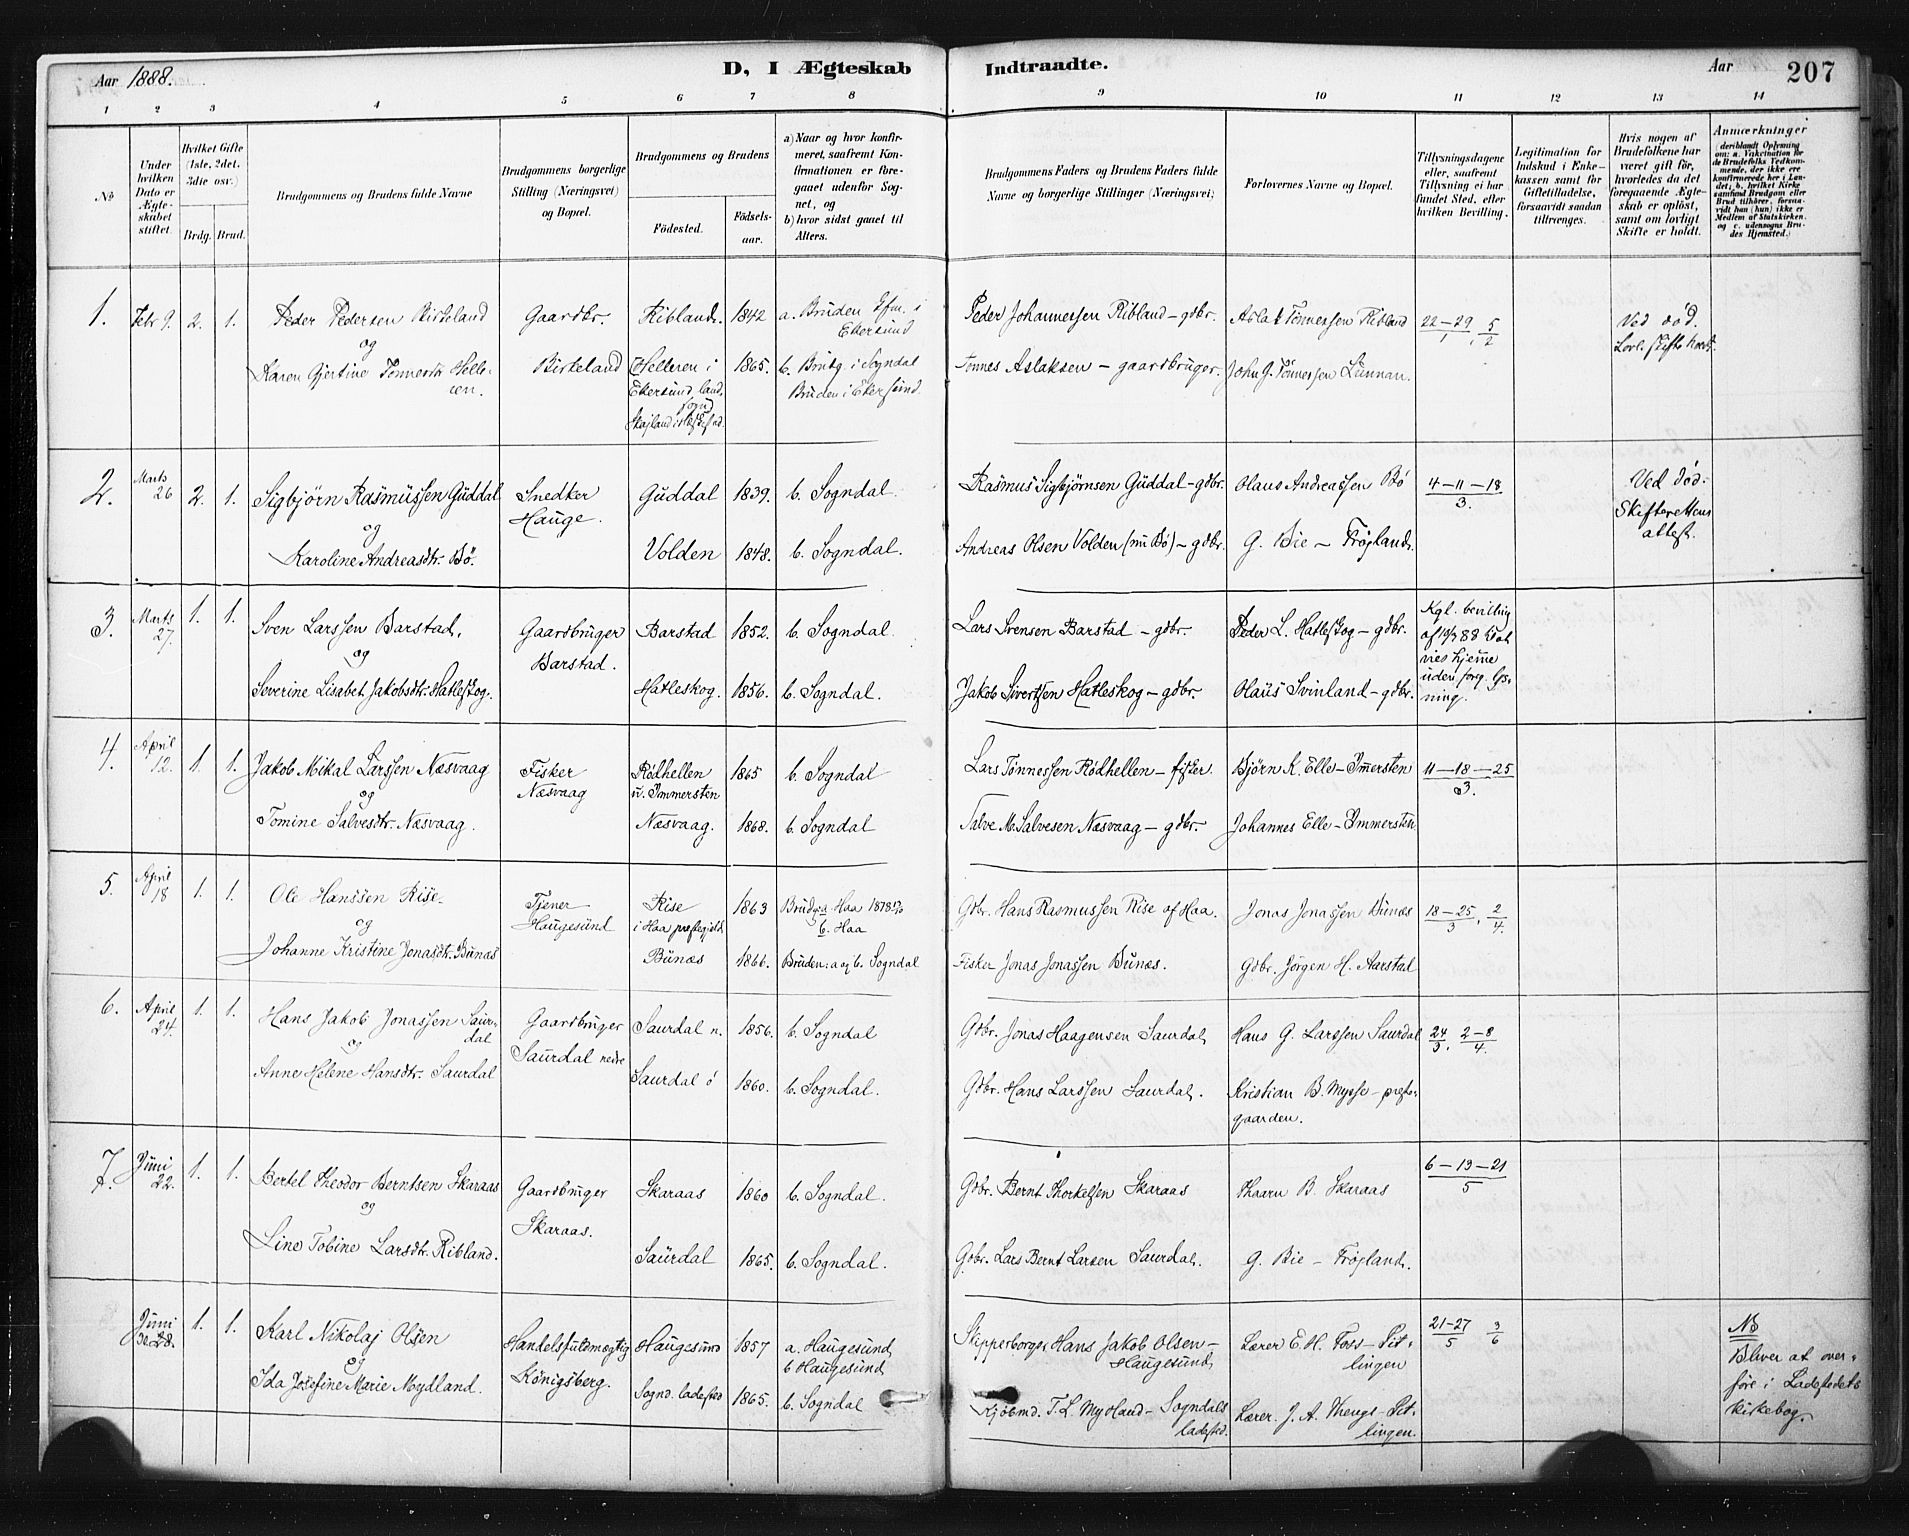 Aar 1888. D, I Ægteskab Indtraadte. Aar 207
1 2 3 4 5 6 7 8 9 10 11 12 13 14
No
Under hvilken Dato er Ægteskabet stiftet.
Hvilket Gifte (1ste, 2det, 3die osv.)
Brdg. Brud.
Brudgommens og Brudens fulde Navne
Brudgommens borgerlige Stilling (Næringsvei) og Bopæl.
Brudgommens og Brudens
Födested. Födselsaar.
a) Naar og hvor konfirmeret, saafremt Konfirmationen er foregaaet udenför Sognet, og
b) hvor sidst gaaet til Alters.
Brudgommens Faders og Brudens Faders fulde Navne og borgerlige Stillinger (Næringsvei)
Forlovernes Navne og Bopæl.
Tillysningsdagene eller, saafremt Tillysning ei har fundet Sted, efter hvilken Bevilling.
Legitimation for Indskud i Enkekassen samt for Giftetilladelse, forsaavidt saadan tiltrænges.
Hvis nogen af Brudefolkene har været gift för, hvorledes da det foregaaende Ægteskab er oplöst, samt om lovligt Skifte er holdt.
Anmærkninger (deriblandt Oplysning om: a. Vakcination for de Brudefolks Vedkommende, der ikke ere konfirmerede her i Landet; b. hvilket Kirkesamfund Brudgom eller Brud tilhörer, forsaavidt han (hun) ikke er Medlem af Statskirken, og c. udensogns Brudes Hjemsted.)
1. Febr 9. 2. 1. Peder Pedersen Birkeland Gaardbr. Ribland. 1842 a. Bruden Efm. i Ekersund Peder Johannessen Ribland – gdbr. Aslak Tönnessen Ribland 22–29/1, 5/2 Ved död.
og
Karen Gjertine Tönnesdtr. Helleren. Birkeland Helleren i Ekersund landsogn 1865. b. Brudg. i Sogndal Bruden i Ekersund. Tønnes Aslaksen – gaardbruger. John G. Tönnessen Lunnan. Lovl. skifte holdt.
2. Marts 26 2. 1. Sigbjörn Rasmussen Guddal Snedker Hauge. Guddal 1839. b. Sogndal. Rasmus Sigbjørnsen Guddal – gdbr. Olaus Andreassen Bö 4–11–18/3. Ved död.
og
Karoline Andreasdtr. Bö. Volden 1848. b. Sogndal. Andreas Olsen Volden (nu Bö) – gdbr. G. Bie – Fröyland. Skifterettens attest.
3. Marts 27. 1. 1. Sven Larssen Barstad. Gaardbruger Barstad. Barstad 1852. b. Sogndal. Lars Svensen Barstad – gdbr. Peder L. Hatleskog – gdbr. Kgl. bevilling
og
Severine Lisabet Jakobsdtr. Hatleskog. Hatleskog. 1856. b. Sogndal. Jakob Sivertsen Hatleskog – gdbr. Olaus Svinland – gdbr. vies hjemme uden forg. lysning.
4. April 12. 1. 1. Jakob Mikal Larssen Næsvaag Fisker Næsvaag Rödhellen u. Immersten 1865 b. Sogndal Lars Tönnessen Rödhellen – fisker. Björn K. Elle – Immersten 11–18–25/3.
og
Tomine Salvesdtr. Næsvaag. Næsvaag. 1868. b. Sogndal Salve M. Salvesen Næsvaag – gdbr. Johannes Elle – Immersten
5. April 18 1. 1. Ole Hanssen Rise. Tjener Haugesund Rise i Haa præstegjeld 1863 Brudg. a Haa 1878 b. Haa Gdbr. Hans Rasmussen Rise af Haa. Jonas Jonassen Bunæs 18–25/3, 2/4.
og
Johanne Kristine Jonasdtr. Bunæs Bunæs 1866. Bruden: a og b. Sogndal Fisker Jonas Jonassen Bunæs. Gdbr. Jörgen H. Aarstad
6. April 24. 1. 1. Hans Jakob Jonassen Saurdal Gaardbruger Saurdal nedre Saurdal n. 1856. b. Sogndal Gdbr. Jonas Haagensen Saurdal Hans G. Larssen Saurdal 24/3, 2–8/4.
og
Anne Helene Hansdtr. Saurdal Saurdal ö 1860. b. Sogndal. Gdbr. Hans Larssen Saurdal. Kristian B. Mysse – præstegaarden.
7. Juni 22. 1. 1. Bertel Theodor Berntsen Skaraas Gaardbruger Skaraas. Skaraas 1860 b. Sogndal. Gdbr. Bernt Thorkelsen Skaraas Thaaru B. Skaraas 6–13–21/5
og
Line Tobine Larsdtr. Ribland. Saurdal 1865. b. Sogndal. Gdbr. Lars Bernt Larsen Saurdal. G. Bie – Fröyland.
Juni 28. 1. 1. Karl Nikolaj Olsen Handelsfuldmægtig Königsberg. Haugesund 1857 a. Haugesund b Haugesund Skipperborger Hans Jakob Olsen – Haugesund Lærer E. H. Foss – 21–27/5 3/6 NB Bliver at overføre i Ladestedets kirkebog.
og
Ida Josefine Marie Mydland. Sognd. ladested 1865. b. Sogndal Kjöbmd. T. L. Mydland – Sogndals ladested. Lærer. J. A.